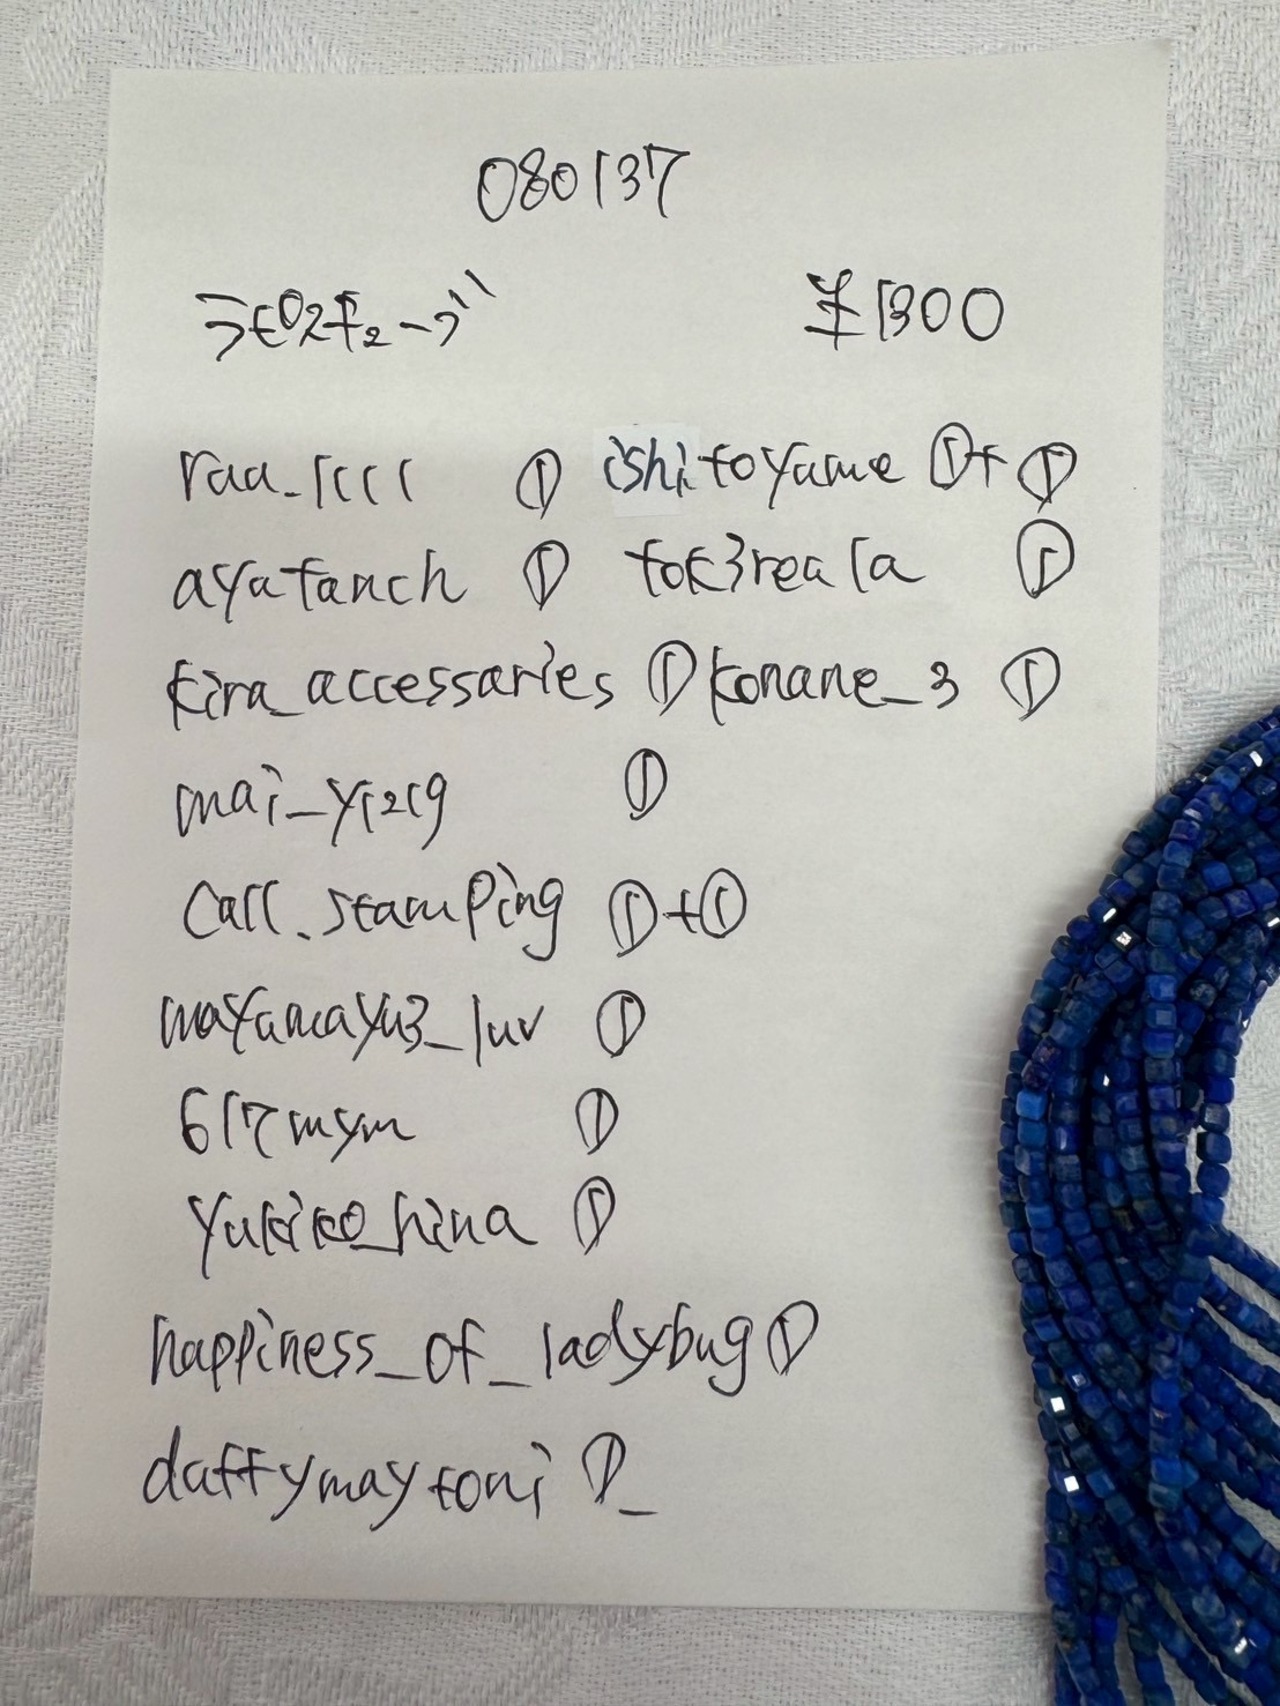 080137
ラピスキューブ ¥1300
raa_1111 ① ishitoyama ①+①
ayatanch ① tok3reala ①
kira_accessaries ① konane_3 ①
mai_y1219 ①
call.stamping ①+①
mayamayu3_luv ①
617mym ①
yukiko_hina ①
happiness_of_ladybug ①
daffymaytoni ①_